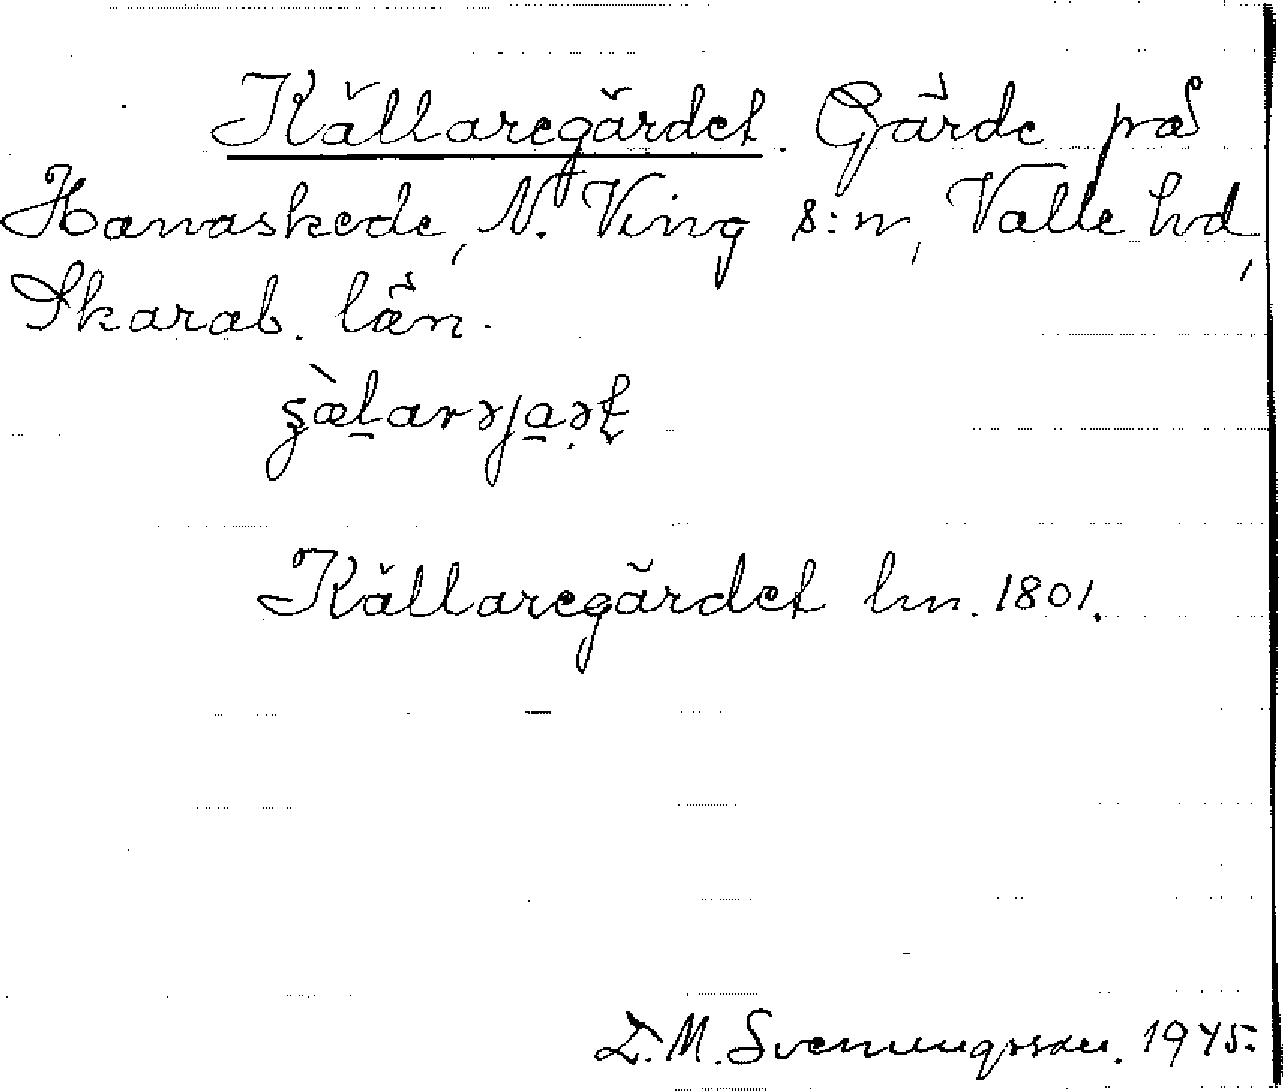 Källaregärdet. Gärde på
Hanaskede, N. Ving s:n, Valle hd,
Skarab. län.
Källaregärdet hm. 1801.
M. Svenungsson. 1945.